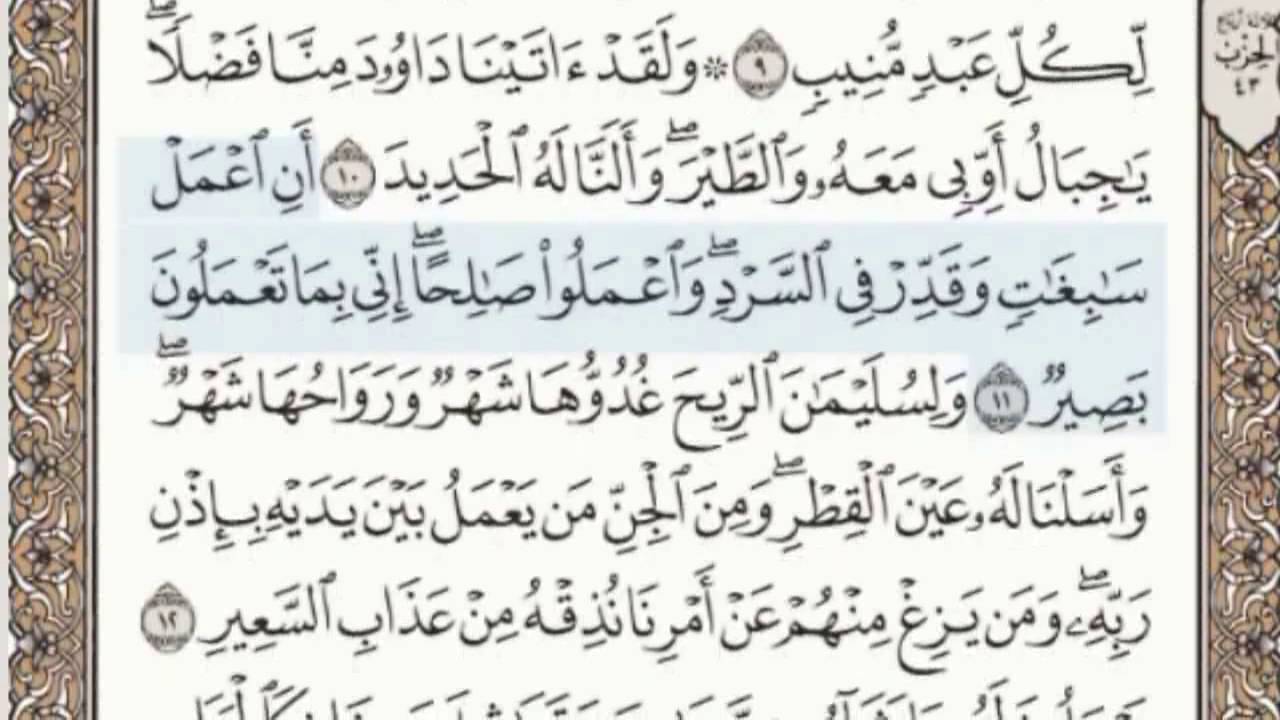 لِّكُلِّ عَبْدٍ مُّنِيبٍ ٩ ۞ وَلَقَدْ ءَاتَيْنَا دَاوُۥدَ مِنَّا فَضْلًاۖ
يَٰجِبَالُ أَوِّبِي مَعَهُۥ وَٱلطَّيْرَۖ وَأَلَنَّا لَهُ ٱلْحَدِيدَ ١٠ أَنِ ٱعْمَلْ
سَٰبِغَٰتٍ وَقَدِّرْ فِي ٱلسَّرْدِۖ وَٱعْمَلُوا۟ صَٰلِحًاۖ إِنِّي بِمَا تَعْمَلُونَ
بَصِيرٌ ١١ وَلِسُلَيْمَٰنَ ٱلرِّيحَ غُدُوُّهَا شَهْرٌ وَرَوَاحُهَا شَهْرٌۖ
وَأَسَلْنَا لَهُۥ عَيْنَ ٱلْقِطْرِۖ وَمِنَ ٱلْجِنِّ مَن يَعْمَلُ بَيْنَ يَدَيْهِ بِإِذْنِ
رَبِّهِۦۖ وَمَن يَزِغْ مِنْهُمْ عَنْ أَمْرِنَا نُذِقْهُ مِنْ عَذَابِ ٱلسَّعِيرِ ١٢
ٱلْحِزْب
٤٣